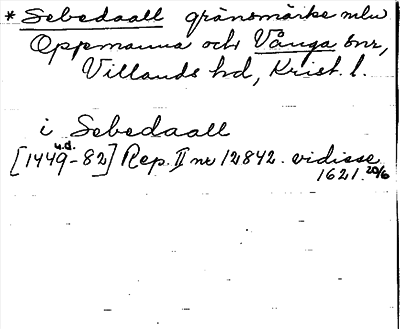 * Sebedaall gränsmärke mlu
Oppmanna och Vånga snr,
Villands hd, Krist. l.
i Sebedaall
[1449-82] u.d. Rep. II nr 12842. vidisse
1621. 20/6